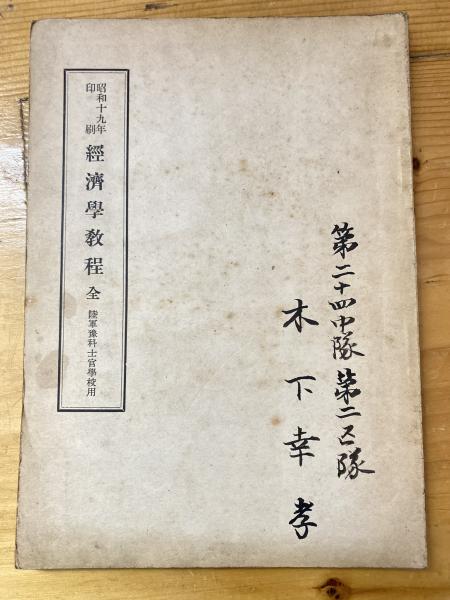 第二十四中隊第二区隊
木下幸孝
昭和十九年
印刷
經濟學教程 全 陸軍豫科士官學校用